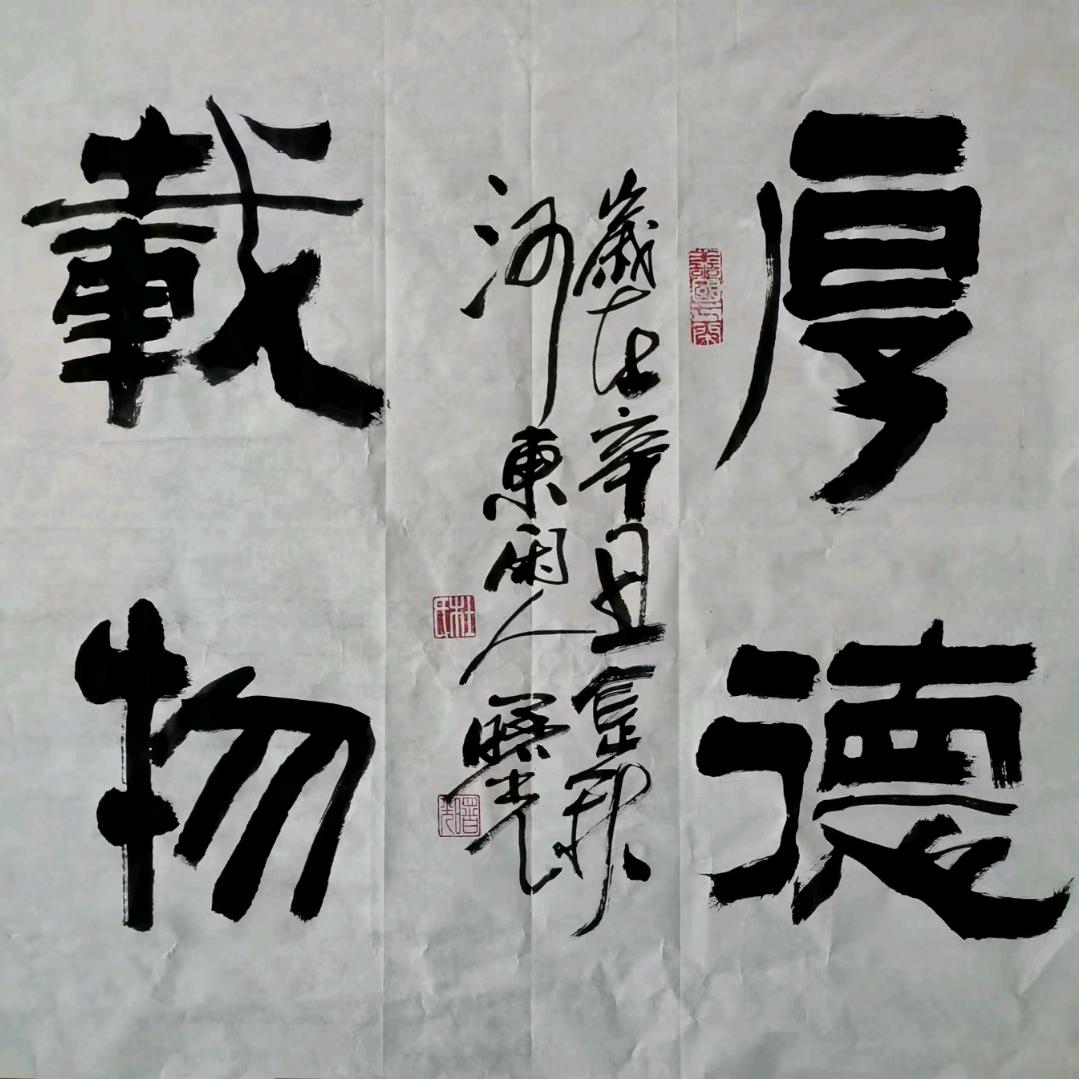 厚德
載物
歲在辛丑夏秋
河東閑人曙光